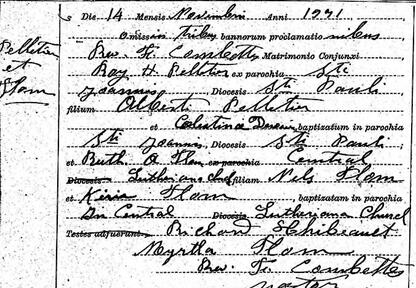 Pelletier
et
Flom
s Die 14 Mensis Novembris Anni 1921
omissis tribus bannorum proclamationibus
Rev. Fr. Combettes Matrimonio Conjunxi
Ray H. Pelletier ex parochia Sti
Joannis, Diocesis Sti Pauli
filium Alberti Pelletier
et Celestina baptizatum in parochia
Sti Joannis, Diocesis Sti Pauli
et Ruth O. Flom ex parochia Central
Diocesis Lutheriana Chu filiam Nels Flom
et Flom baptizatam in parochia
In Central Diocesis Lutheriana Church
Testes adfuerunt Richard Thibeault
Myrtle Flom
Rev. Fr. Combettes
pastor